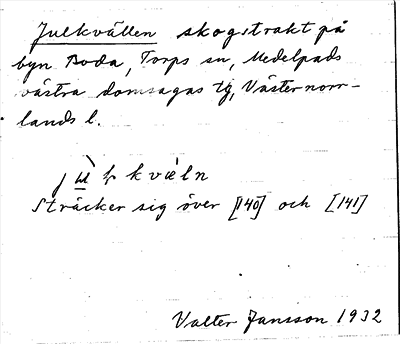 Julkvällen skogstrakt på
byn Boda, Torps sn, Medelpads
västra domsagas tg, Västernorr-
lands l.
kvæln
Sträcker sig över [140] och [141]
Valter Jansson 1932